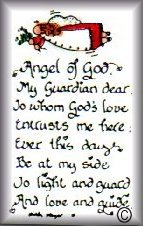 Angel of God.
My Guardian dear
To whom God's love
Entrusts me here;
Ever this day
Be at my side
To light and guard
And love and guide
©